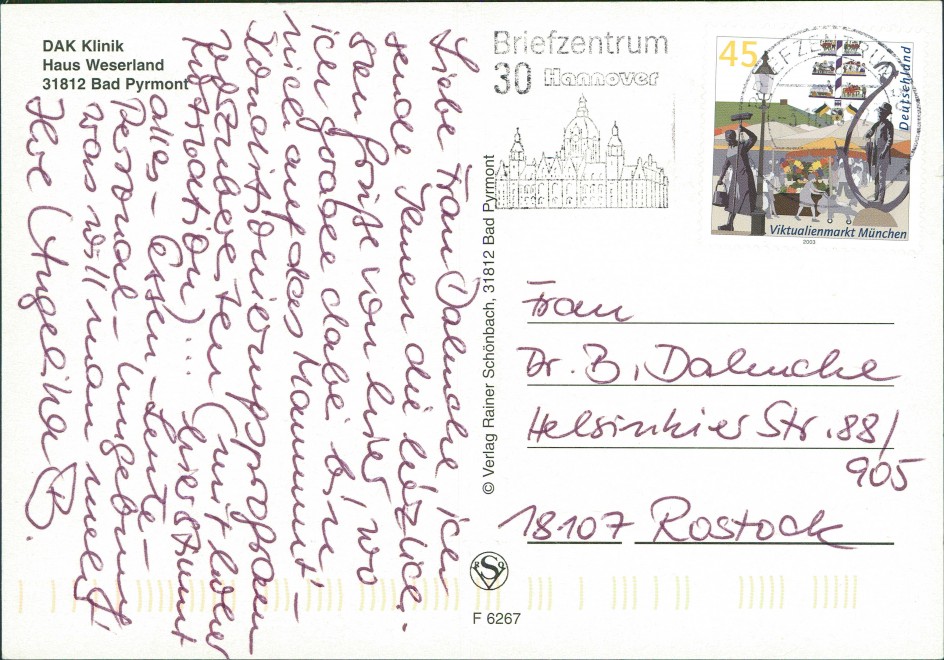 DAK Klinik
Haus Weserland
31812 Bad Pyrmont
Liebe Frau Dahncke ich
sende Ihnen die herzlich-
sten Grüße von hier, wo
ich grade dabei bin,
mich auf das Mammut-
Konditionierungsprogramm
vorzubereiten (mit lieber
Frustration)... hier stimmt
alles - Essen - Leute -
Personal - Umgebung
was will man mehr!
Ihre Angelika B.
© Verlag Rainer Schönbach, 31812 Bad Pyrmont
Briefzentrum
30 Hannover
45
Deutschland
Viktualienmarkt München
2003
Frau
Dr. B. Dahncke
Helsinkier Str. 88/
905
18107 Rostock
S
F 6267